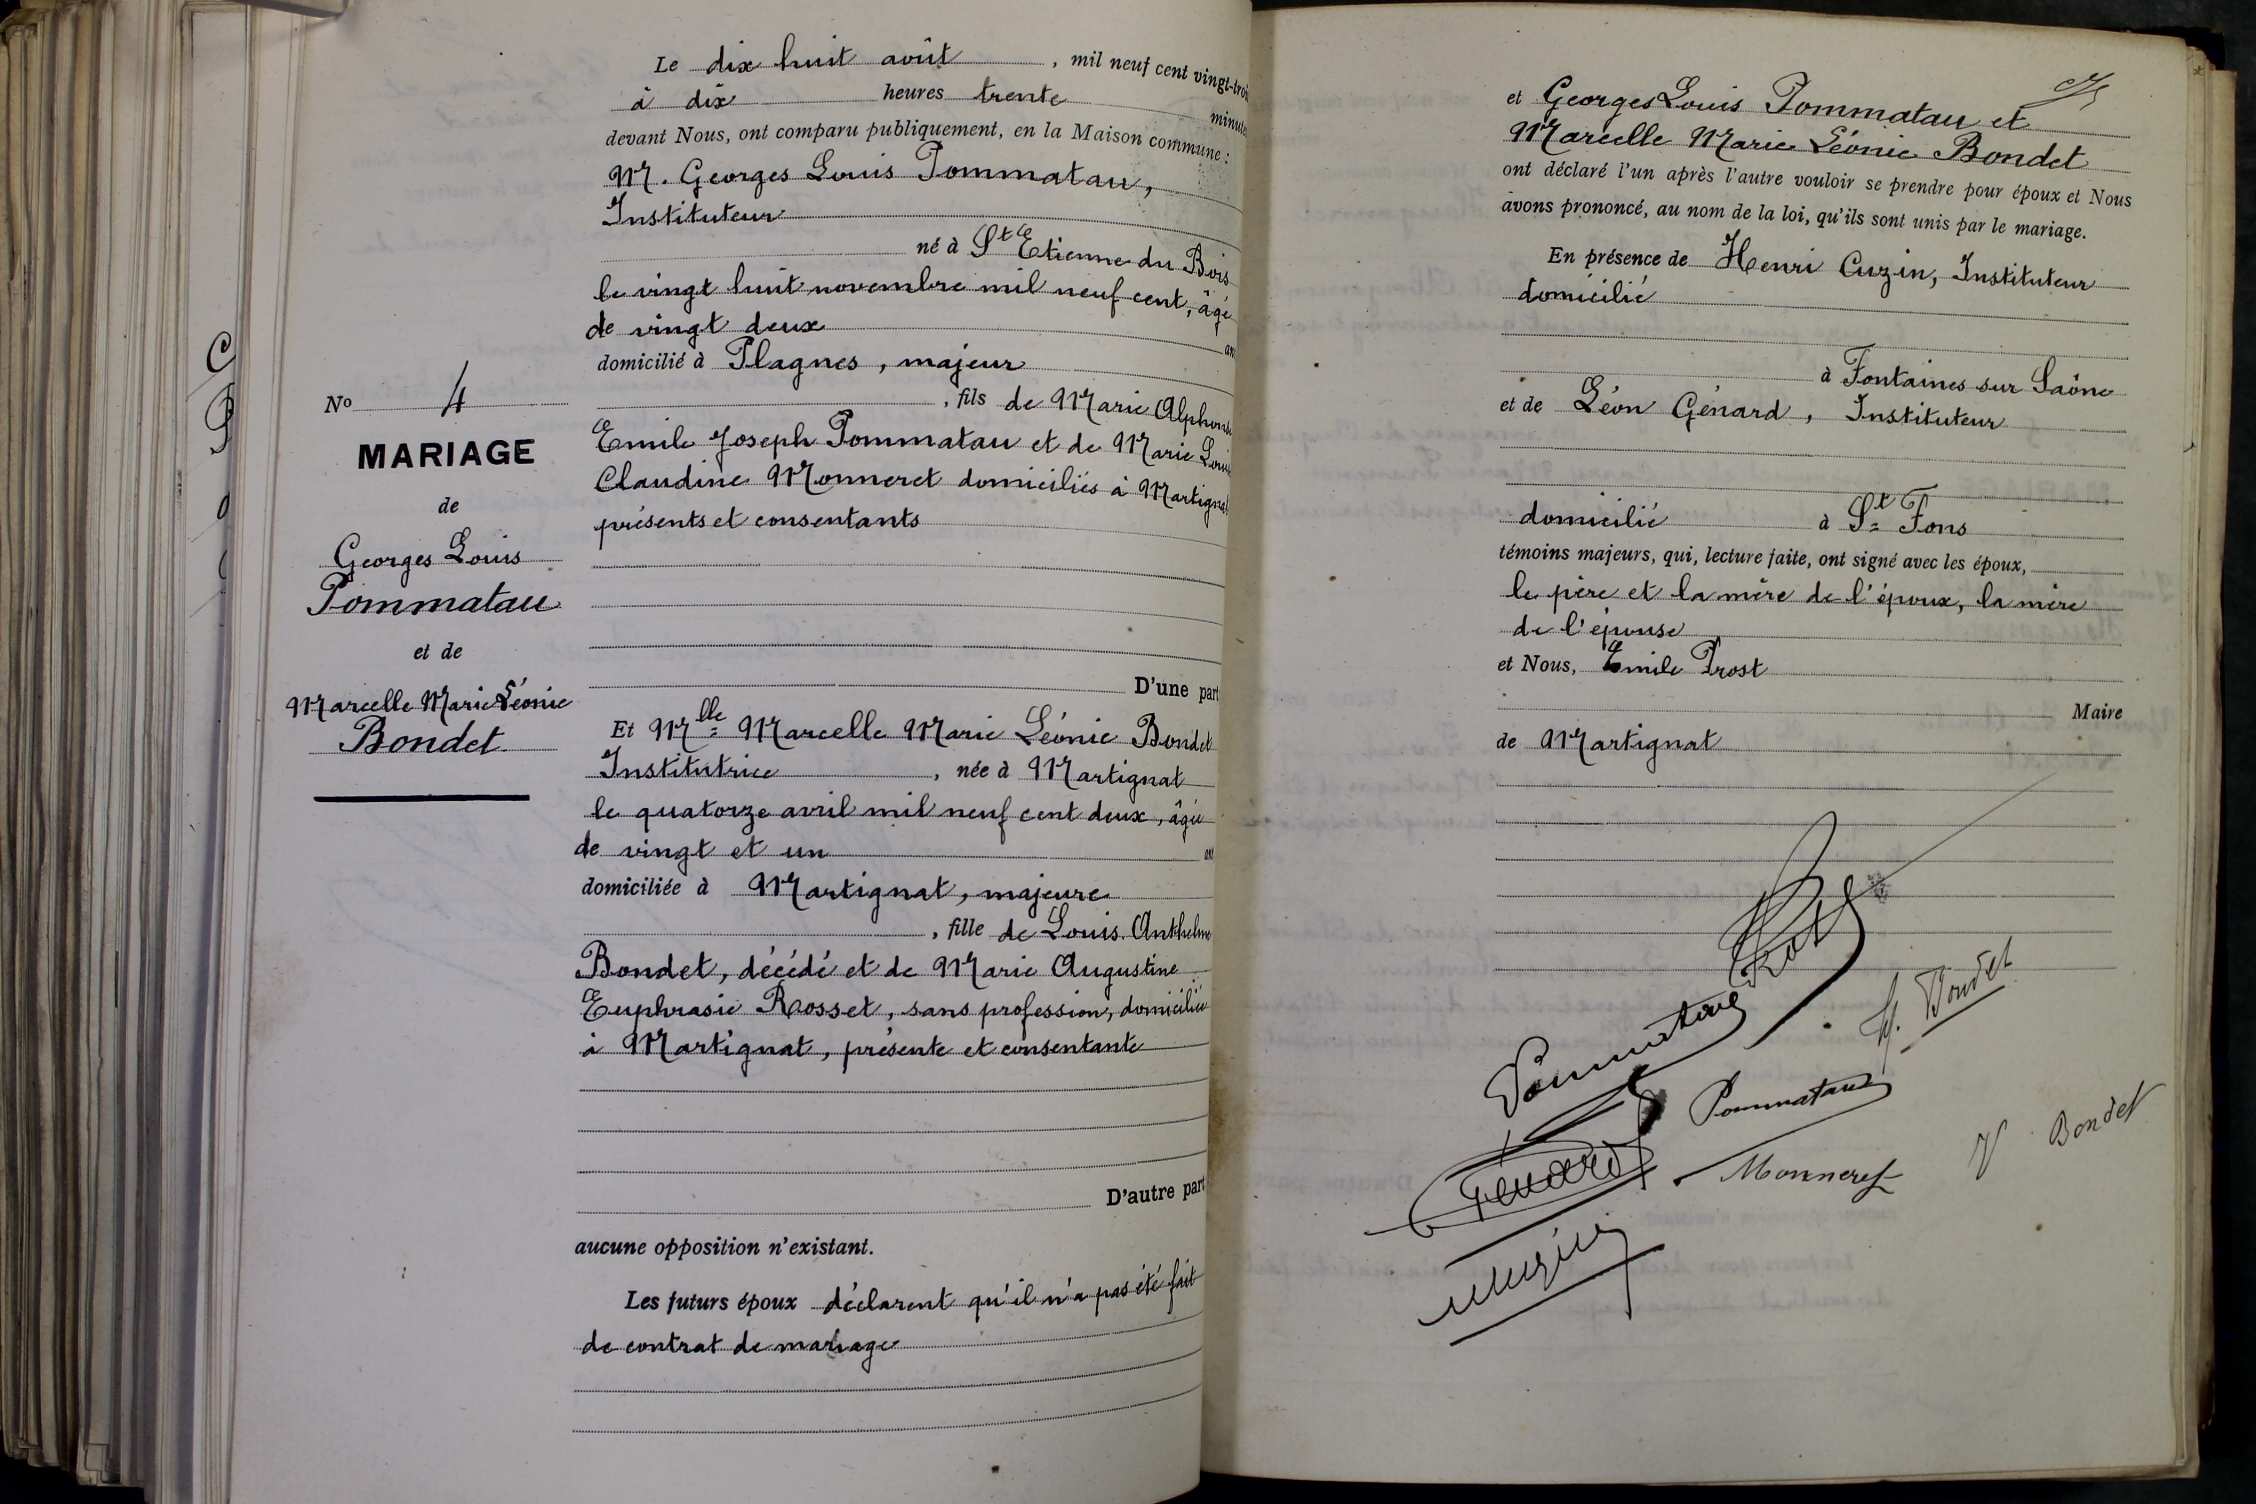 N° 4
MARIAGE
de
Georges Louis
Pommatau
et de
Marcelle Marie Léonie
Bondet
Le dix huit août , mil neuf cent vingt-troi
à dix heures trente minute
devant Nous, ont comparu publiquement, en la Maison commune :
M. Georges Louis Pommatau,
Instituteur
né à St Etienne du Bois
le vingt huit novembre mil neuf cent, âgé
de vingt deux an
domicilié à Plagnes, majeur
, fils de Marie Alphonse
Emile Joseph Pommatau et de Marie Louise
Claudine Monneret domiciliés à Martignat
présents et consentants
D'une part
Et Mlle Marcelle Marie Léonie Bondet
Institutrice , née à Martignat
le quatorze avril mil neuf cent deux, âgée
de vingt et un an
domiciliée à Martignat, majeure
, fille de Louis Anthelme
Bondet, décédé et de Marie Augustine
Euphrasie Rosset, sans profession, domiciliée
à Martignat, présente et consentante
D'autre part
aucune opposition n'existant.
Les futurs époux déclarent qu'il n'a pas été fait
de contrat de mariage
et Georges Louis Pommatau et
Marcelle Marie Léonie Bondet
ont déclaré l'un après l'autre vouloir se prendre pour époux et Nous
avons prononcé, au nom de la loi, qu'ils sont unis par le mariage.
En présence de Henri Cuzin, Instituteur
domicilié
à Fontaines sur Saône
et de Léon Génard, Instituteur
domicilié à St Fons
témoins majeurs, qui, lecture faite, ont signé avec les époux,
le père et la mère de l'époux, la mère
de l'épouse
et Nous, Emile Prost
Maire
de Martignat
Prost
M. Bondet
Pommatau
Pommatau
V Bondet
Génard
Monneret
Cuzin